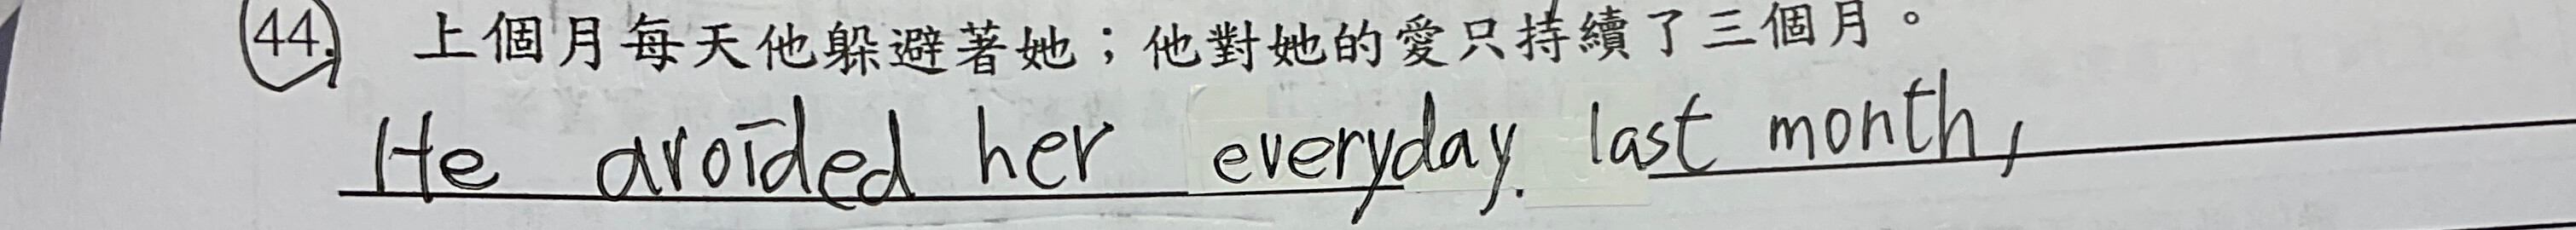 44. 上個月每天他躲避著她；他對她的愛只持續了三個月。
He avoided her everyday. last month,